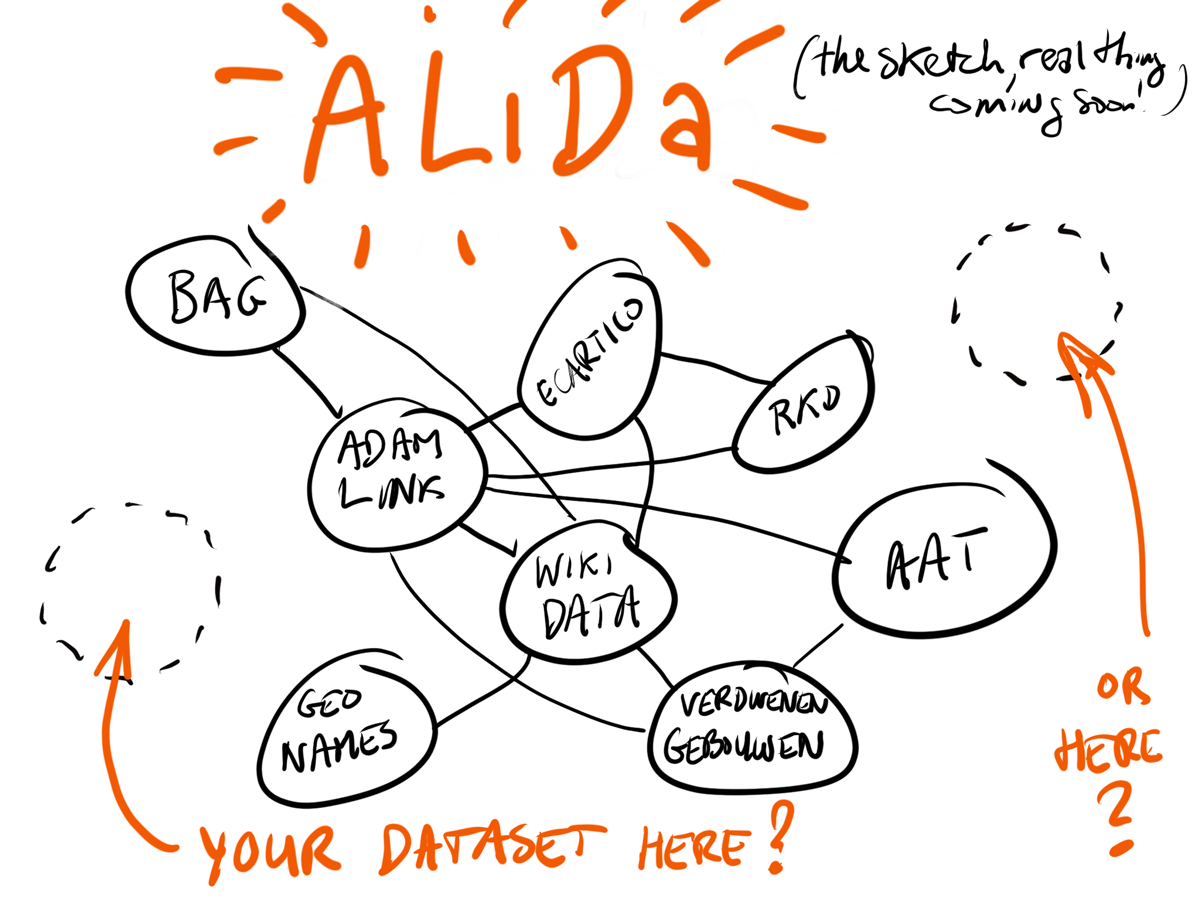 ALiDa
(the sketch, real thing
coming soon!)
BAG
ECARTICO
RKD
ADAM
LINK
AAT
WIKI
DATA
GEO
NAMES
VERDWENEN
GEBOUWEN
OR
HERE
?
YOUR DATASET HERE?